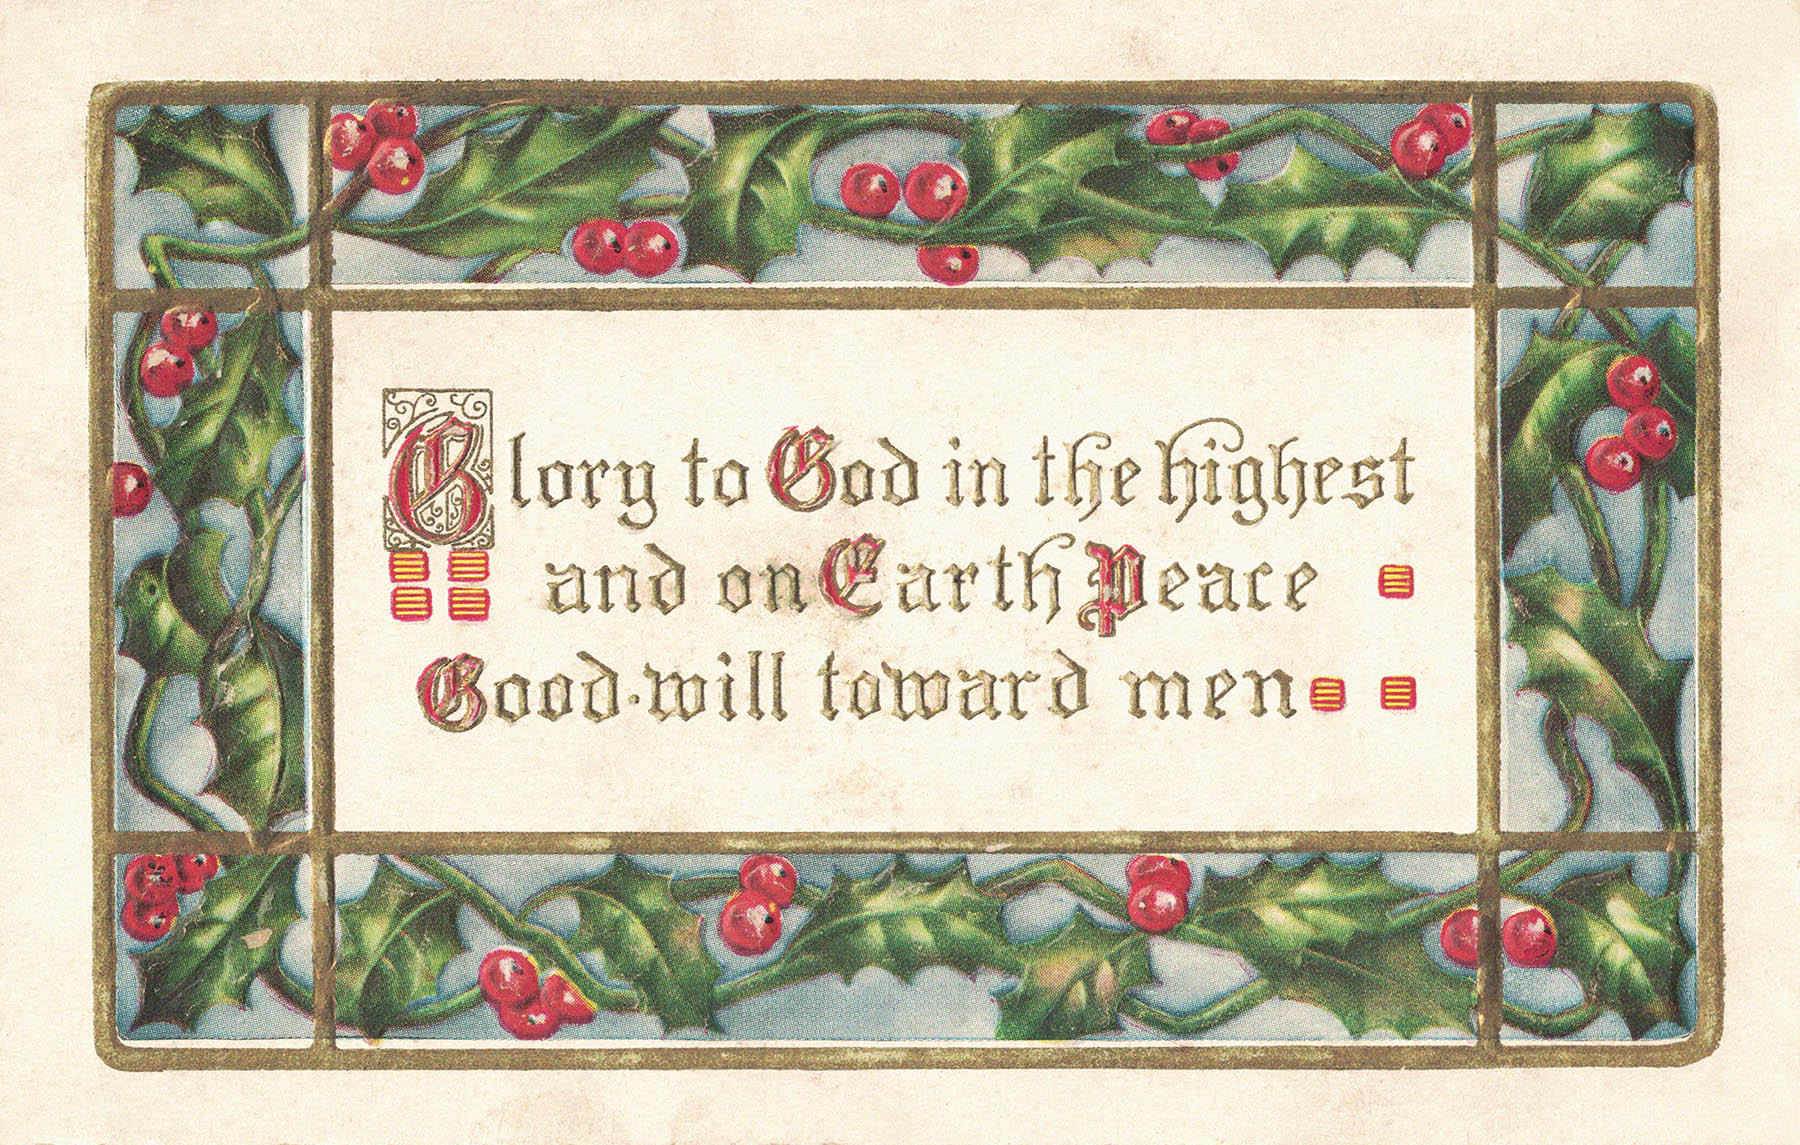 Glory to God in the highest
and on Earth Peace
Good-will toward men